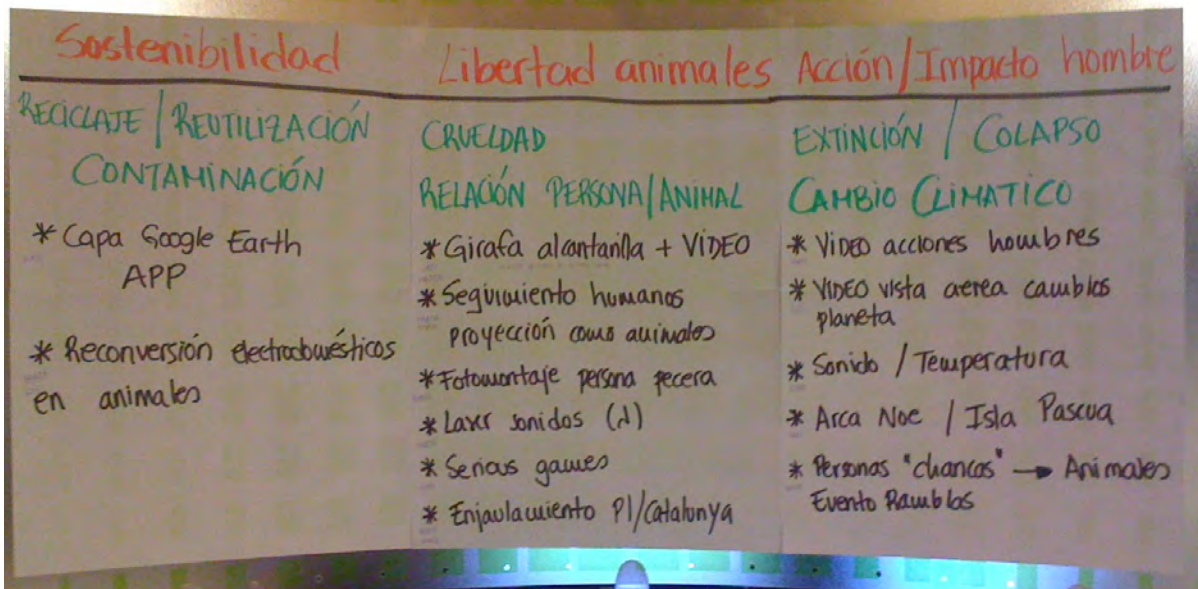 Sostenibilidad
RECICLAJE / REUTILIZACIÓN
CONTAMINACIÓN
* Capa Google Earth
APP
* Reconversión electrodomésticos
en animales
Libertad animales
CRUELDAD
RELACIÓN PERSONA/ANIMAL
* Girafa alcantarilla + VIDEO
* Seguimiento humanos
proyección como animales
* Fotomontaje persona pecera
* Laser sonidos (λ)
* Serious games
* Enjaulamiento Pl/Catalunya
Acción/Impacto hombre
EXTINCIÓN / COLAPSO
CAMBIO CLIMATICO
* VIDEO acciones hombres
* VIDEO vista aerea cambios
planeta
* Sonido / Temperatura
* Arca Noe / Isla Pascua
* Personas "chancas" → Animales
Evento Ramblas